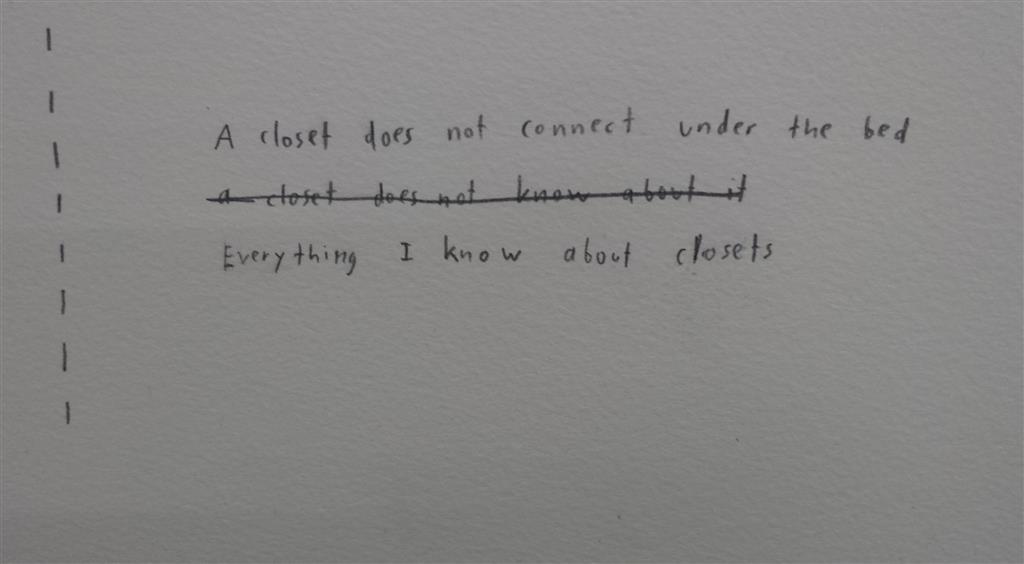 A closet does not connect under the bed
a closet does not know about it
Everything I know about closets